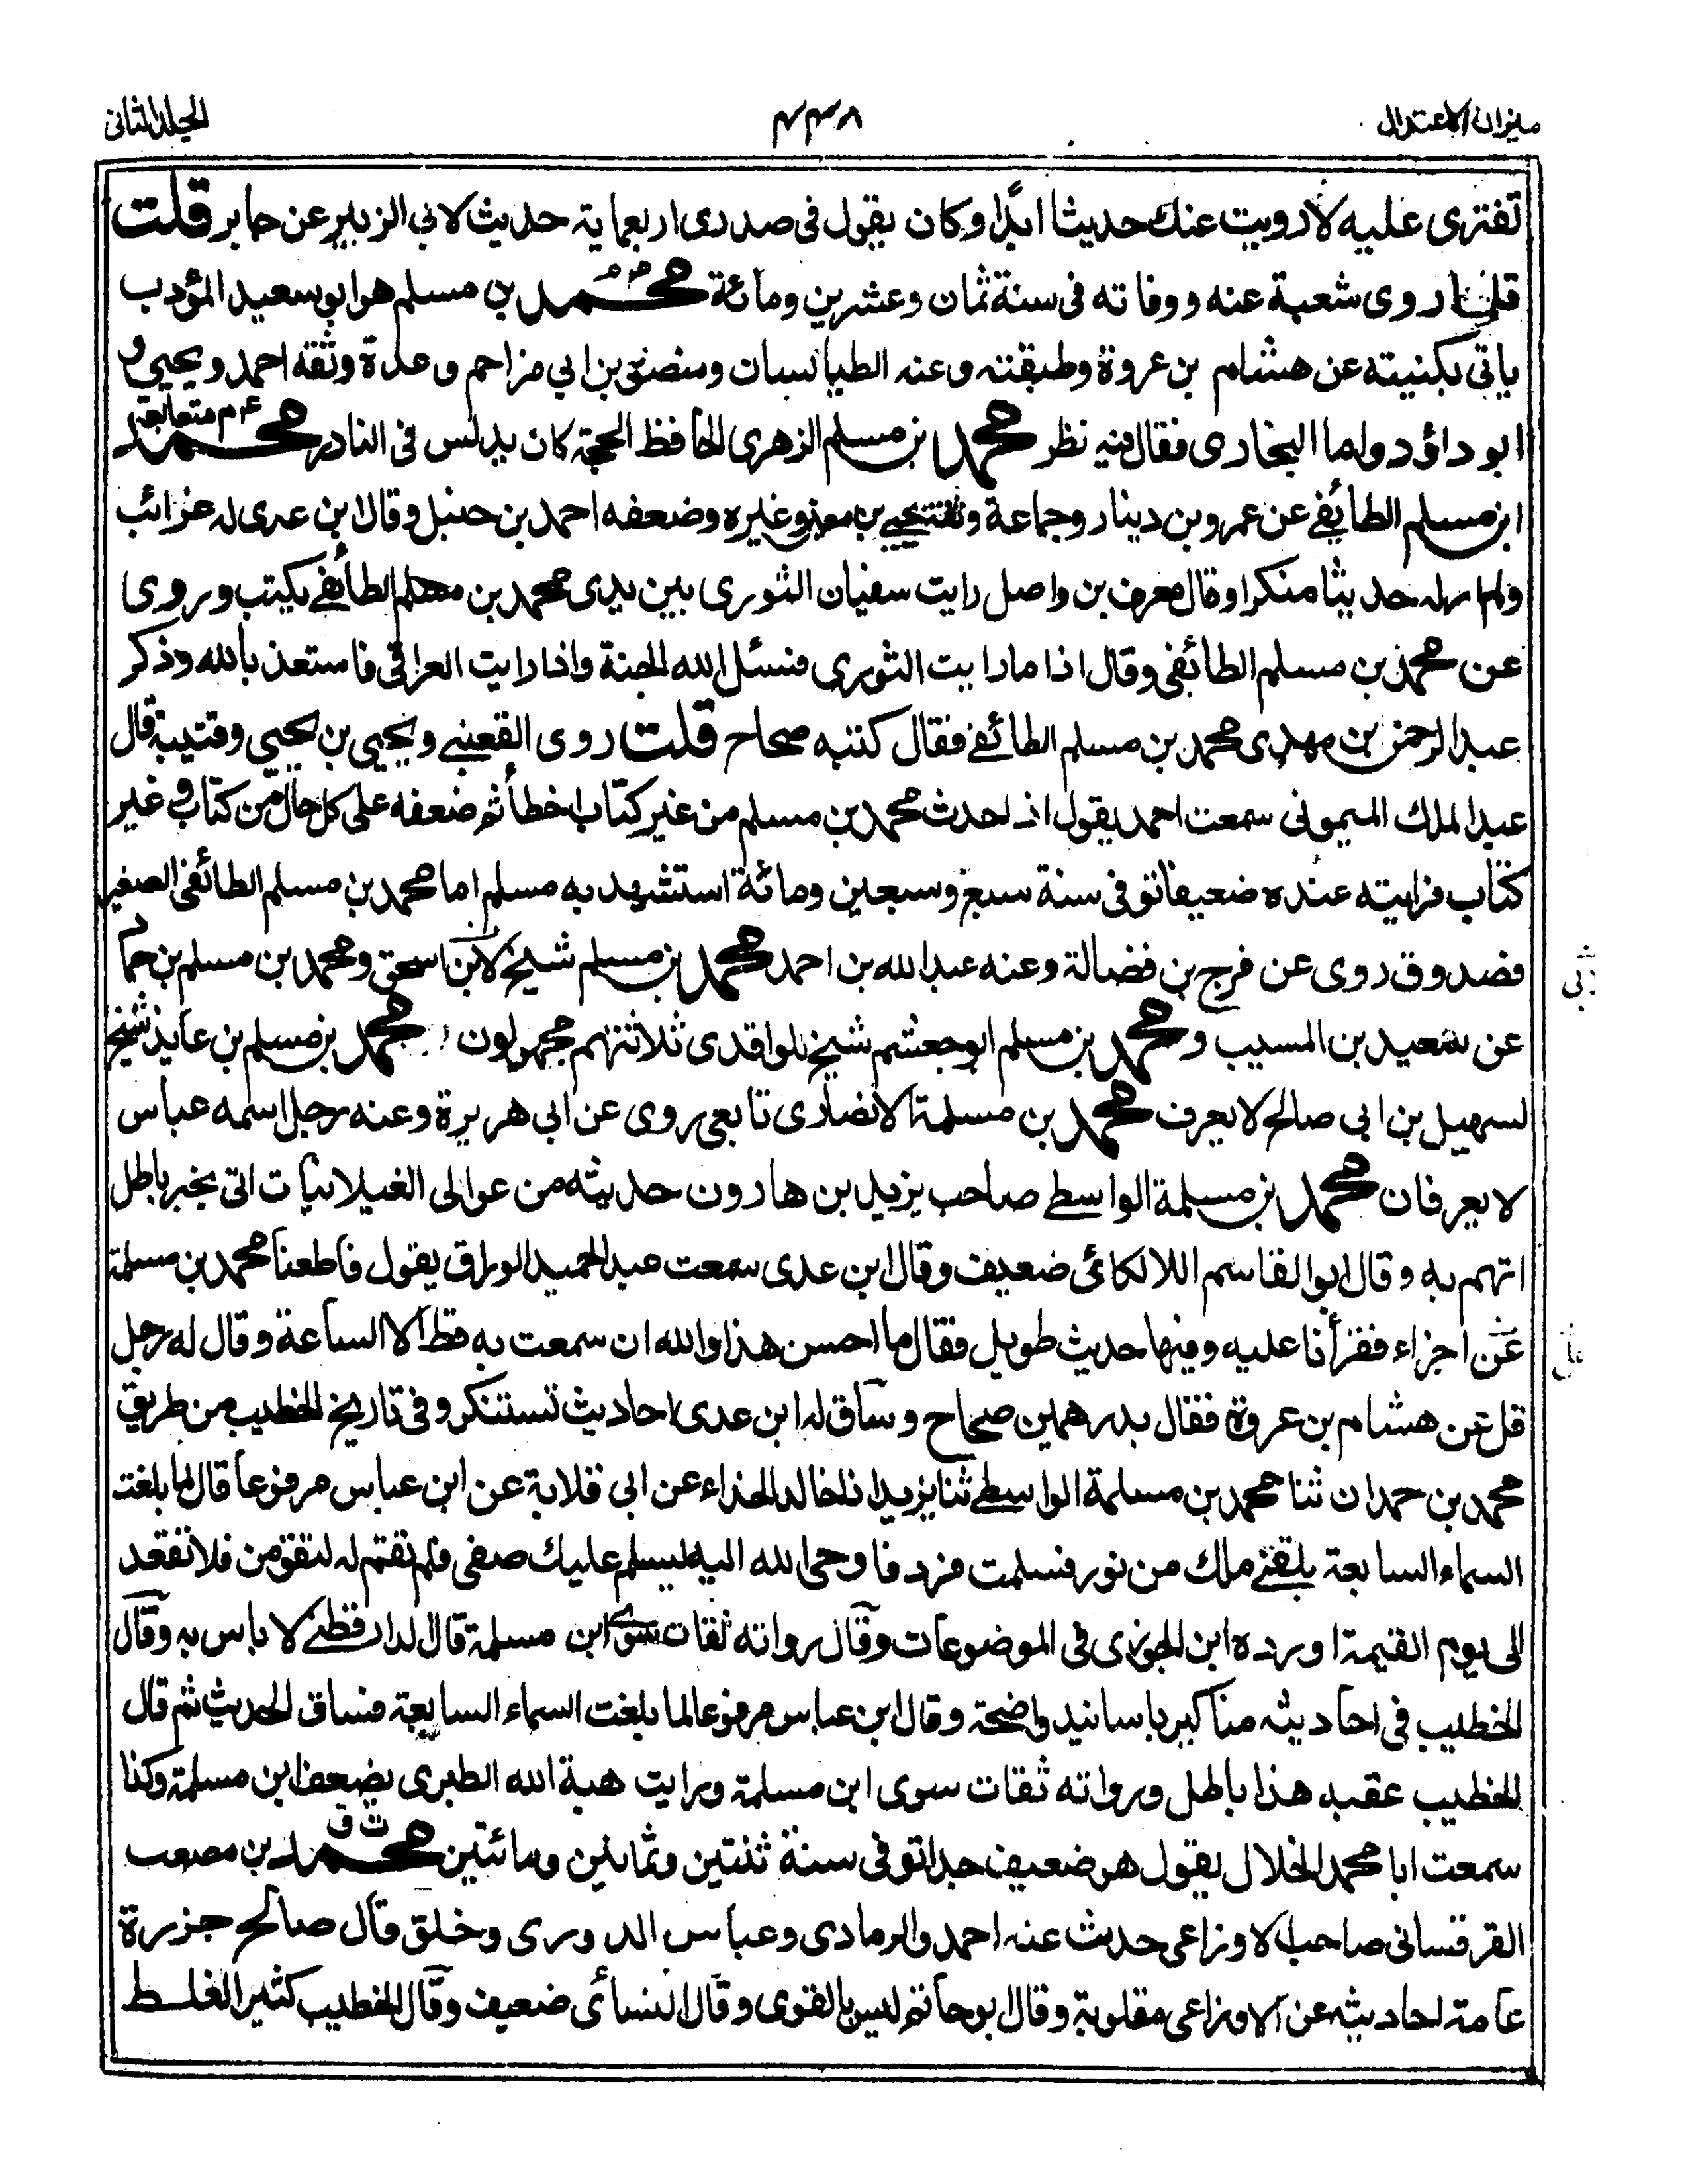 ميزان الاعتدال
٤٣٨
المجلد الثاني
تفترى عليه لا رويت عنك حديثا ابدا وكان يقول فى صدرى اربعماية حديث لابى الزبير عن جابر قلت
قلما روى شعبة عنه ووفاته فى سنة ثمان وعشرين ومائة محمد بن مسلم هو ابو سعيد المؤدب
ياتى بكنيته عن هشام بن عروة وطبقته وعنه الطيالسيان ومنصور بن ابي مزاحم وعدة وثقه احمد ويحيى و
ابو داؤد واما البخارى فقال فيه نظر محمد بن مسلم الزهرى الحافظ الحجة كان يدلس فى النادر محمد
ابن مسلم الطائفے عن عمرو بن دينار وجماعة وثقه يحيے بن معين وغيره وضعفه احمد بن حنبل وقال ابن عدى له غرائب
ولم ار له حديثا منكرا وقال معرف بن واصل رايت سفيان الثورى بين يدى محمد بن مسلم الطائفے يكتب وروى
عن محمد بن مسلم الطائفى وقال اذا ما رايت الثورى فسئل الله الجنة واذا رايت العراقى فاستعذ بالله وذكر
عبد الرحمن بن مهدى محمد بن مسلم الطائفے فقال كتبه صحاح قلت روى القعنبے ويحيى بن يحيى وقتيبة قال
عبد الملك الميمونى سمعت احمد يقول اذ لحدث محمد بن مسلم من غير كتاب اخطأ ثم ضعفه على كل حال من كتاب و غير
كتاب فرايته عنده ضعيفا توفى سنة سبع وسبعين ومائة استشهد به مسلم اما محمد بن مسلم الطائفى الصغير
فصدوق روى عن فرج بن فضالة وعنه عبد الله بن احمد محمد بن مسلم شيخ لابن اسحق ومحمد بن مسلم بن جما
عن سعيد بن المسيب ومحمد بن مسلم ابو جعشم شيخ للواقدى ثلاثتهم مجهولون محمد بن مسلم بن عايذ شيخ
لسهيل بن ابى صالح لا يعرف محمد بن مسلمة الانصارى تابعى روى عن ابى هريرة وعنه رجل اسمه عباس
لا يعرفان محمد بن مسلمة الواسطے صاحب يزيد بن هارون حديثه من عوالى الغيلانيات اتى بخبر باطل
اتهم به وقال ابو القاسم اللالكائى ضعيف وقال ابن عدى سمعت عبد الحميد الوراق يقول قاطعنا محمد بن مسلمة
عن اجزاء فقرأنا عليه وفيها حديث طويل فقال ما احسن هذا والله ان سمعت به قط الا الساعة وقال له رجل
قل عن هشام بن عروة فقال بدرهمين صحاح وساق له ابن عدى احاديث تستنكر وفى تاريخ الخطيب من طريق
محمد بن حمدان ثنا محمد بن مسلمة الواسطے ثنا يزيد انا خالد الحذاء عن ابى قلابة عن ابن عباس مرفوعا قال لما بلغت
السماء السابعة يلقنے ملك من نور فسلمت فرد فاوحى الله اليه ليسلم عليك صفى فلم تقم له لتقومن فلا تقعد
الى يوم القيمة اورده ابن الجوزى فى الموضوعات وقال رواته ثقات سوى ابن مسلمة قال الدارقطنے لا باس به وقال
الخطيب فى احاديثه مناكير باسانيد واضحة وقال ابن عباس مرفوعا لما بلغت السماء السابعة فساق الحديث ثم قال
الخطيب عقبه هذا باطل ورواته ثقات سوى ابن مسلمة ورايت هبة الله الطبرى يضعف ابن مسلمة وكذا
سمعت ابا محمد الخلال يقول هو ضعيف جدا توفى سنة ثنتين وثمانين ومائتين محمد بن مصعب
القرقسانى صاحب الاوزاعى حدث عنه احمد والرمادى وعباس الدورى وخلق قال صالح جزرة
عامة احاديثه عن الاوزاعى مقلوبة وقال ابو حاتم ليس بالقوى وقال النسائى ضعيف وقال الخطيب كثير الغلط